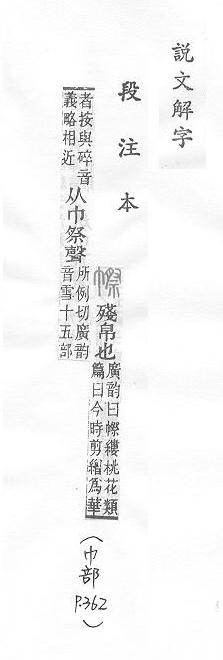 説文解字
段注本
㡜殘帛也廣韵曰㡜縷桃花類
篇曰今時剪繒爲華
者按與碎音
義略相近从巾祭聲所例切廣韵
音雪十五部
(巾部
P.362)